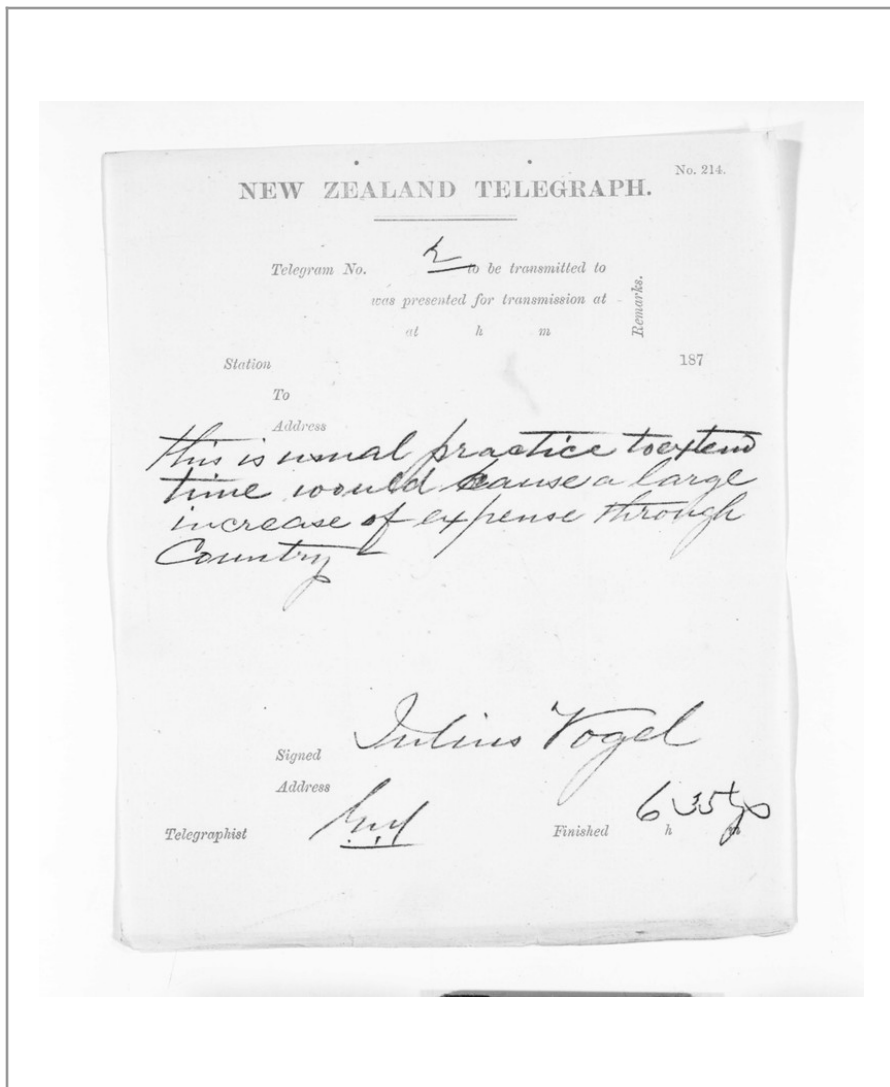 No. 214.
NEW ZEALAND TELEGRAPH.
Telegram No. 2 to be transmitted to
was presented for transmission at
Remarks.
at h m
Station 187
To
Address
this is usual practice to extend
time would cause a large
increase of expense through
Country
Signed Julius Vogel
Address
Telegraphist
Finished 6 h 35 m